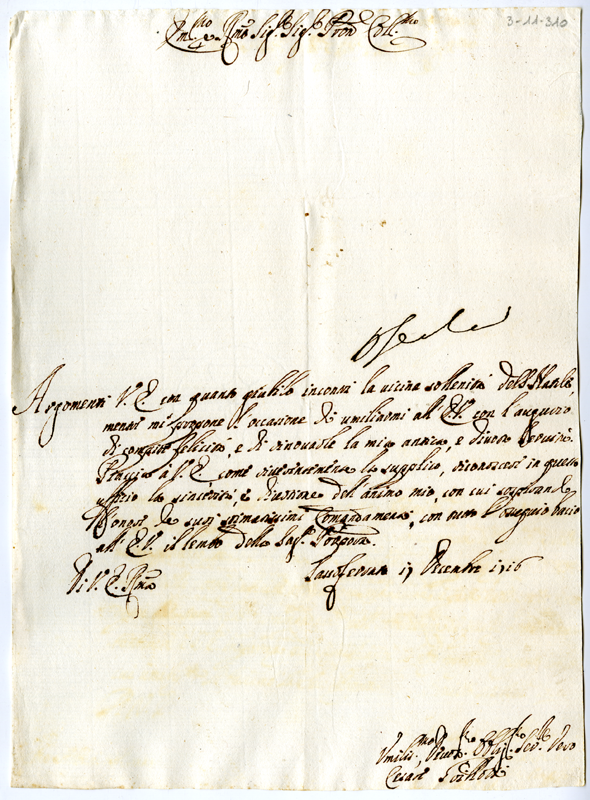 3-11-310
Em.mo e Rmo Sig.r Sig.r Pron Coll.mo
Argomenti V. E. con quanto giubilo incontri la vicina sollenità dell Natale,
mentre mi propone l'occasione di umiliarmi all' E.V. con l'augurio
di compite felicità, e di rinovarle la mia antica, e divota servitù.
V. E. come vivamente la supplico, riconoscere in questo
ufficio la sincerità, e divozione del animo mio, con cui sospirando
l'onore de suoi stimatissimi Comandamenti, con tutto l'ossequio bacio
all' E.V. il lembo della Sag.ra Porpora.
Di V. E. Rma
17 Decembre 1716
Umiliss.mo Devot. Obblig. Ser. Vero
Cesare